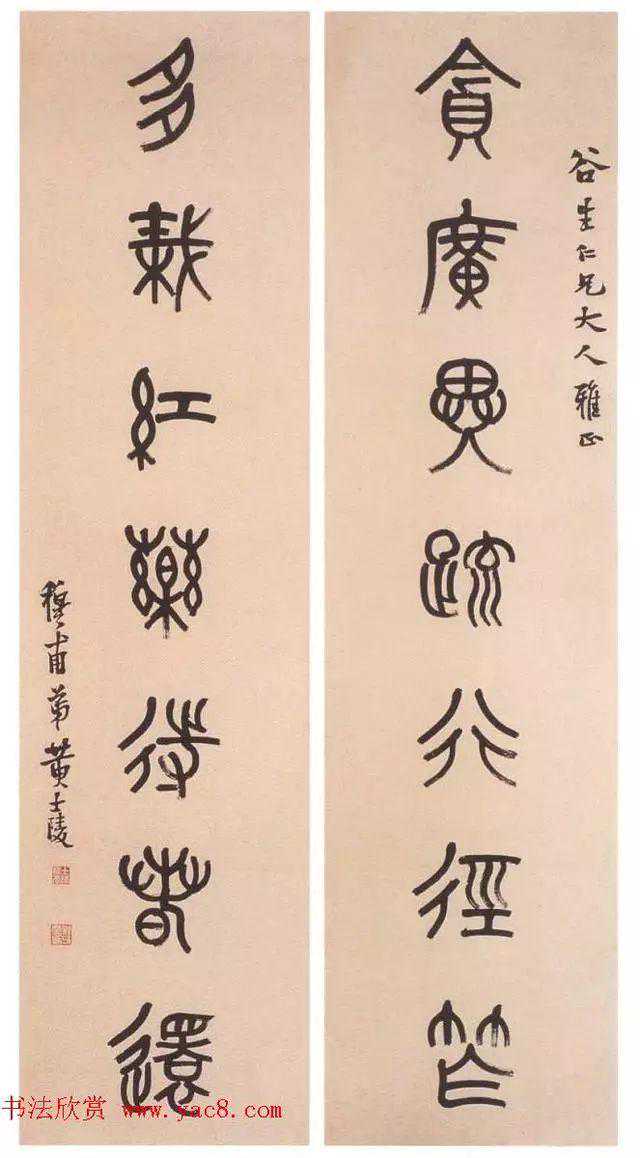 谷生仁兄大人雅正
貪廣異疏行徑笮
多栽紅藥待春還
穆甫弟黃士陵
书法欣赏 www.yac8.com